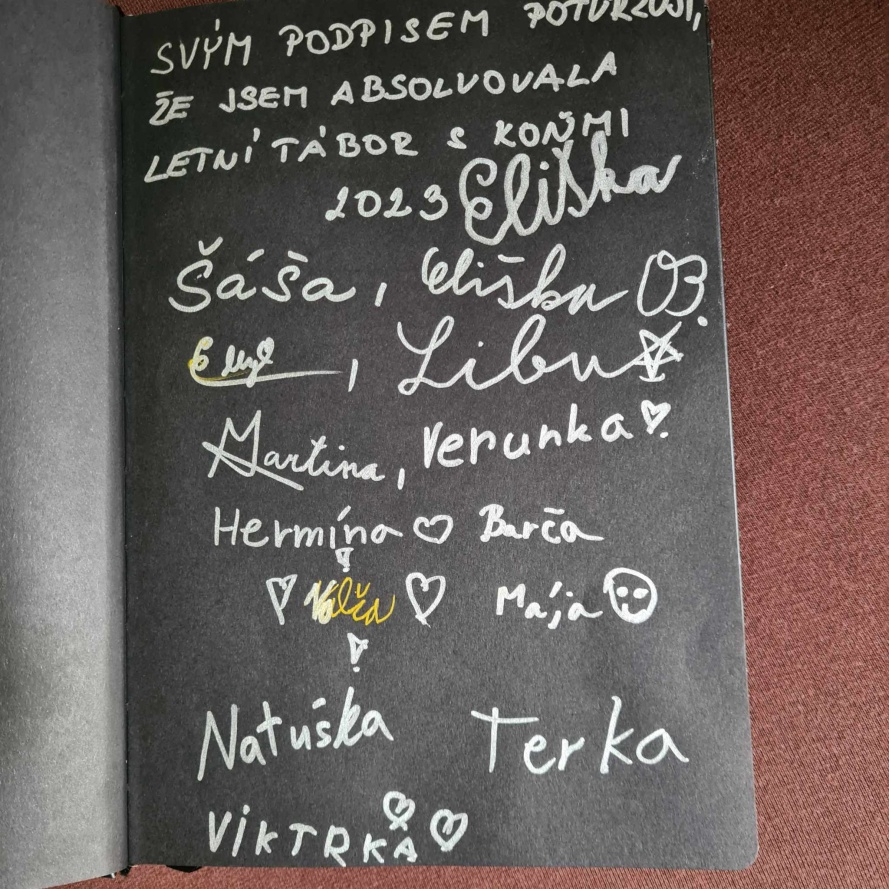 SVÝM PODPISEM POTVRZUJI,
ŽE JSEM ABSOLVOVALA
LETNÍ TÁBOR S KOŇMI
2023 Eliška
Šáša, Eliška OB.
, Libu
Martina, Verunka
Hermína Barča
Valča Mája
Natuška Terka
VIKTRKA